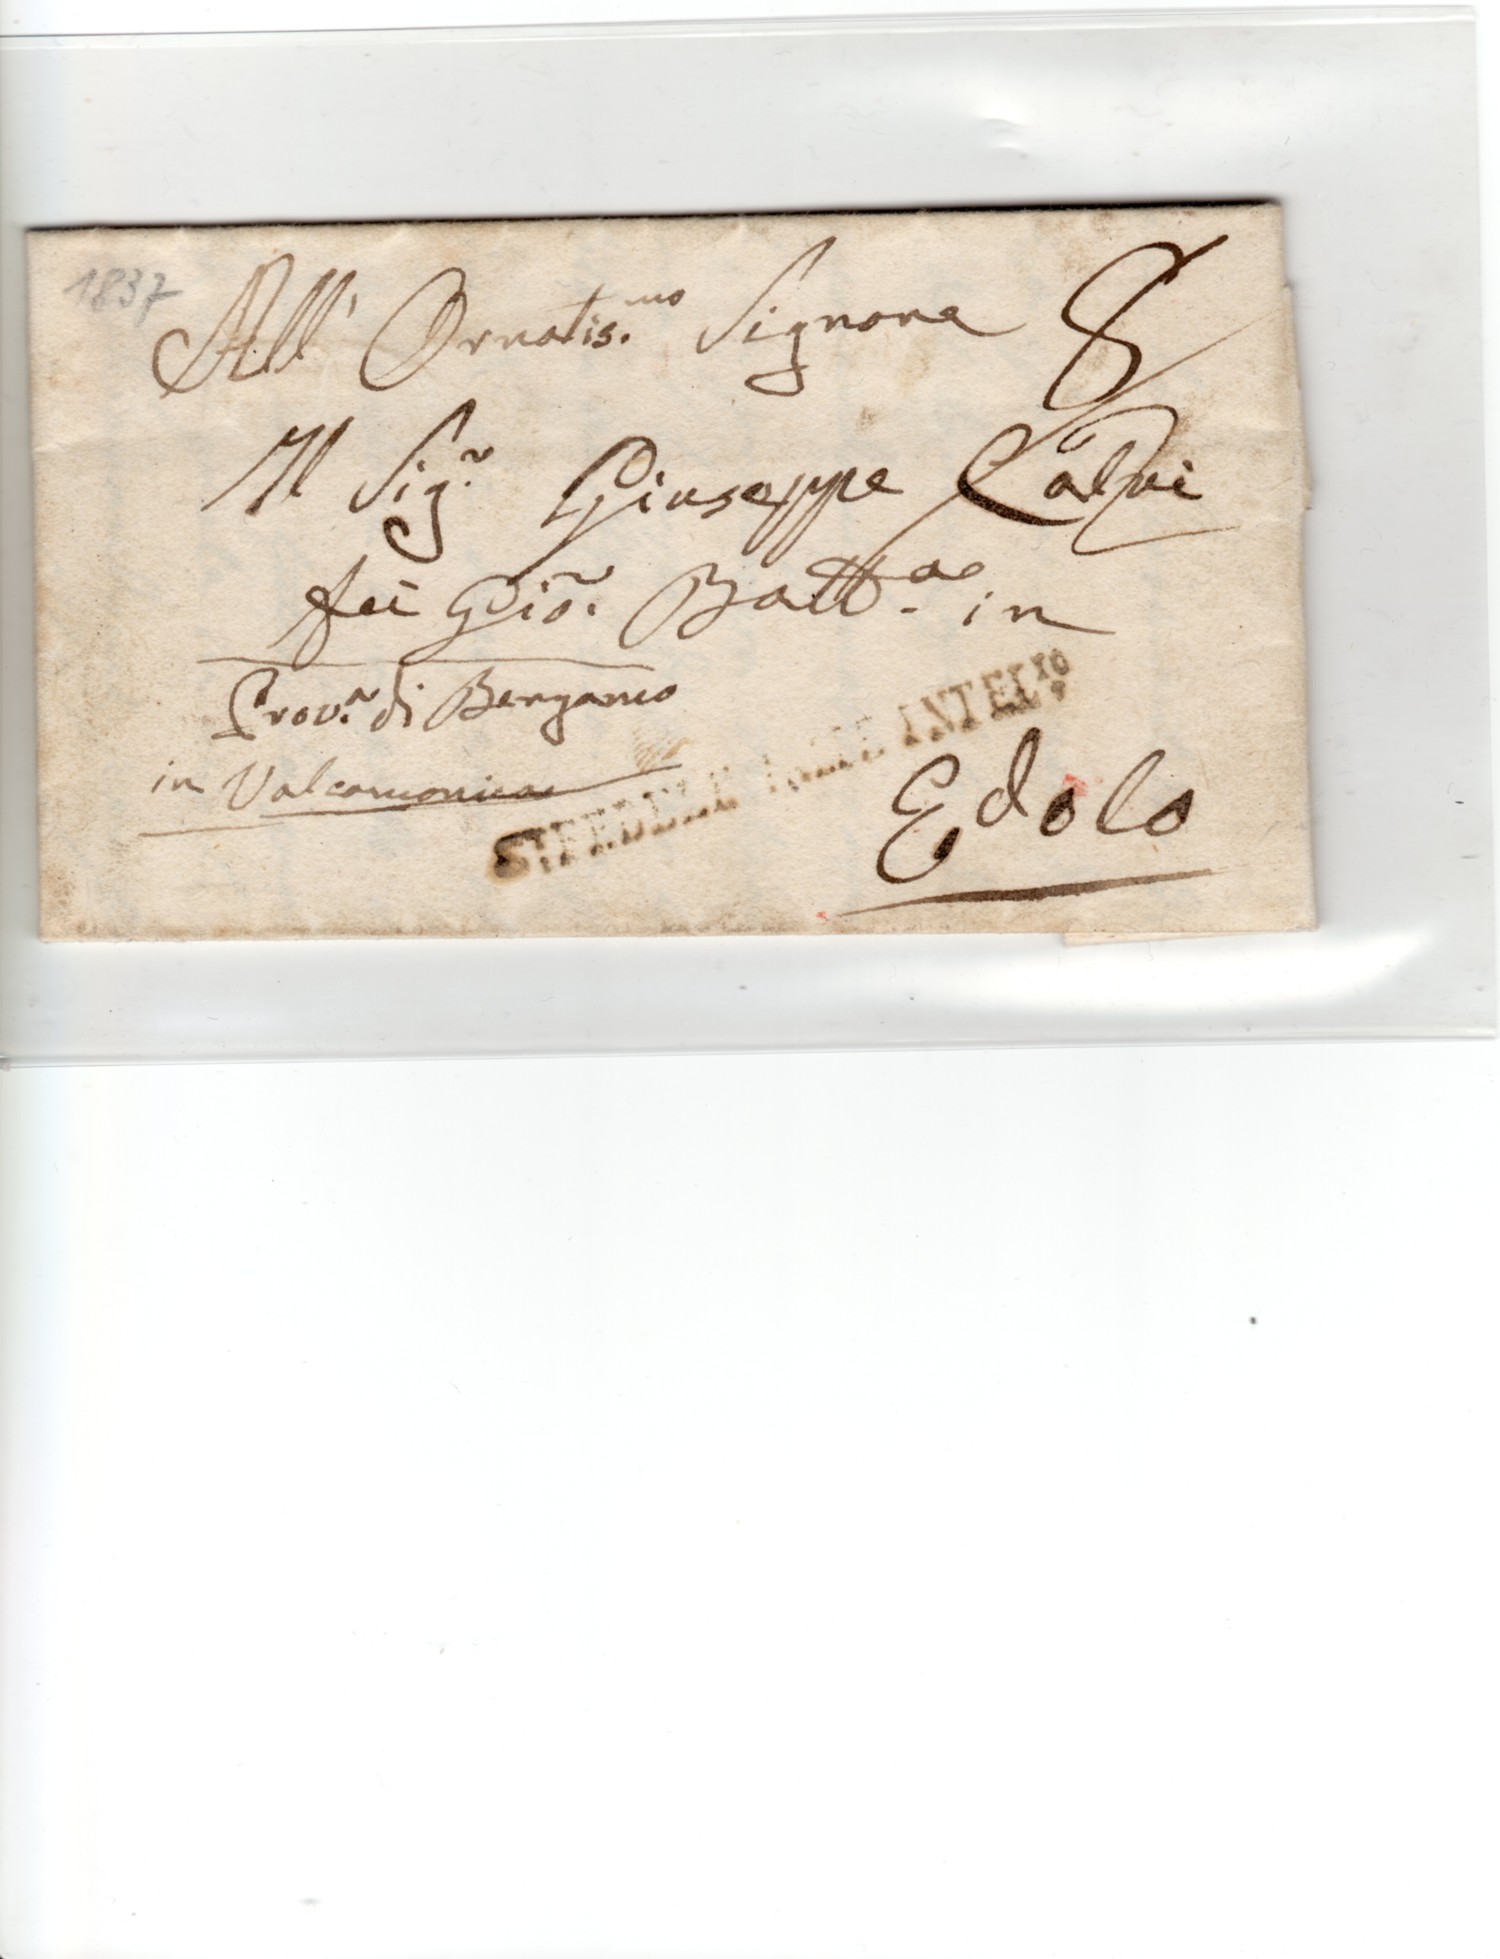 1837
All' Ornatis.mo Signore 8
Il Sig.r Giuseppe Calvi
fu Gio. Batt.a in
Prov.a di Bergamo
in Valcamonica
S. FEDELE INTEL.°
Edolo